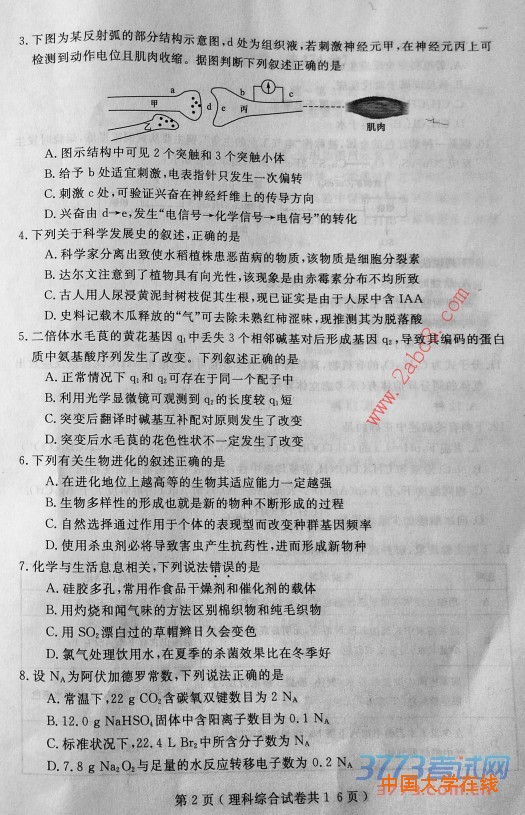 3.下图为某反射弧的部分结构示意图,d处为组织液,若刺激神经元甲,在神经元丙上可
检测到动作电位且肌肉收缩。据图判断下列叙述正确的是
a b c
甲 d e 丙
肌肉
A.图示结构中可见2个突触和3个突触小体
B.给予b处适宜刺激,电表指针只发生一次偏转
C.刺激c处,可验证兴奋在神经纤维上的传导方向
D.兴奋由d→e,发生“电信号→化学信号→电信号”的转化
4.下列关于科学发展史的叙述,正确的是
A.科学家分离出致使水稻植株患恶苗病的物质,该物质是细胞分裂素
B.达尔文注意到了植物具有向光性,该现象是由赤霉素分布不均所致
C.古人用人尿浸黄泥封树枝促其生根,现已证实是由于人尿中含IAA
D.史料记载木瓜释放的“气”可去除未熟红柿涩味,现推测其为脱落酸
5.二倍体水毛茛的黄花基因q₁中丢失3个相邻碱基对后形成基因q₂,导致其编码的蛋白
质中氨基酸序列发生了改变。下列叙述正确的是
A.正常情况下q₁和q₂可存在于同一个配子中
B.利用光学显微镜可观测到q₂的长度较q₁短
C.突变后翻译时碱基互补配对原则发生了改变
D.突变后水毛茛的花色性状不一定发生了改变
6.下列有关生物进化的叙述正确的是
A.在进化地位上越高等的生物其适应能力一定越强
B.生物多样性的形成也就是新的物种不断形成的过程
C.自然选择通过作用于个体的表现型而改变种群基因频率
D.使用杀虫剂必将导致害虫产生抗药性,进而形成新物种
7.化学与生活息息相关,下列说法错误的是
A.硅胶多孔,常用作食品干燥剂和催化剂的载体
B.用灼烧和闻气味的方法区别棉织物和纯毛织物
C.用SO₂漂白过的草帽辫日久会变色
D.氯气处理饮用水,在夏季的杀菌效果比在冬季好
8.设Nᴀ为阿伏加德罗常数,下列说法正确的是
A.常温下,22 g CO₂含碳氧双键数目为2 Nᴀ
B.12.0 g NaHSO₄固体中含阳离子数目为0.1 Nᴀ
C.标准状况下,22.4 L Br₂中所含分子数为Nᴀ
D.7.8 g Na₂O₂与足量的水反应转移电子数为0.2 Nᴀ
第2页(理科综合试卷共16页)
www.2abc8.com
3773考试网
中国大学在线